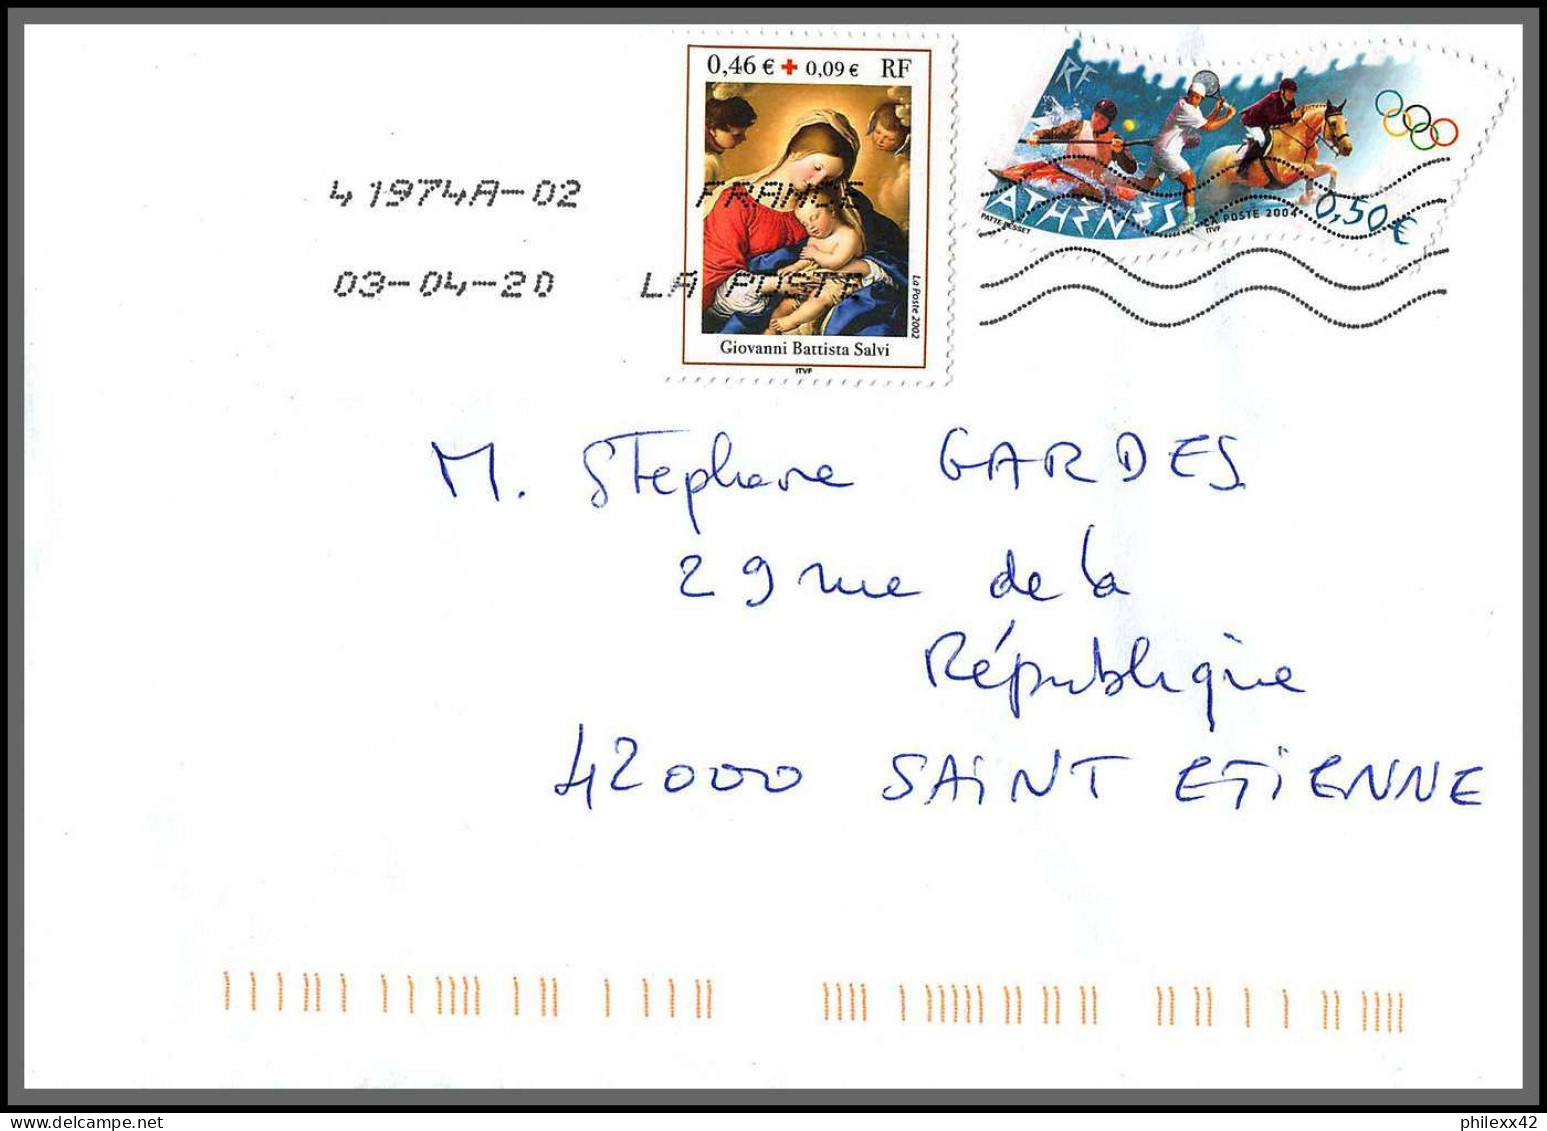 0,46 € + 0,09 € RF
RF
41974A-02 FRANCE
ATHENES
PATTE BESSET
LA POSTE 2004
ITVF
0,50 €
03-04-20 LA POSTE
La Poste 2002
Giovanni Battista Salvi
ITVF
M. Stephane GARDES
29 rue de la
République
42000 SAINT ETIENNE
philexx42